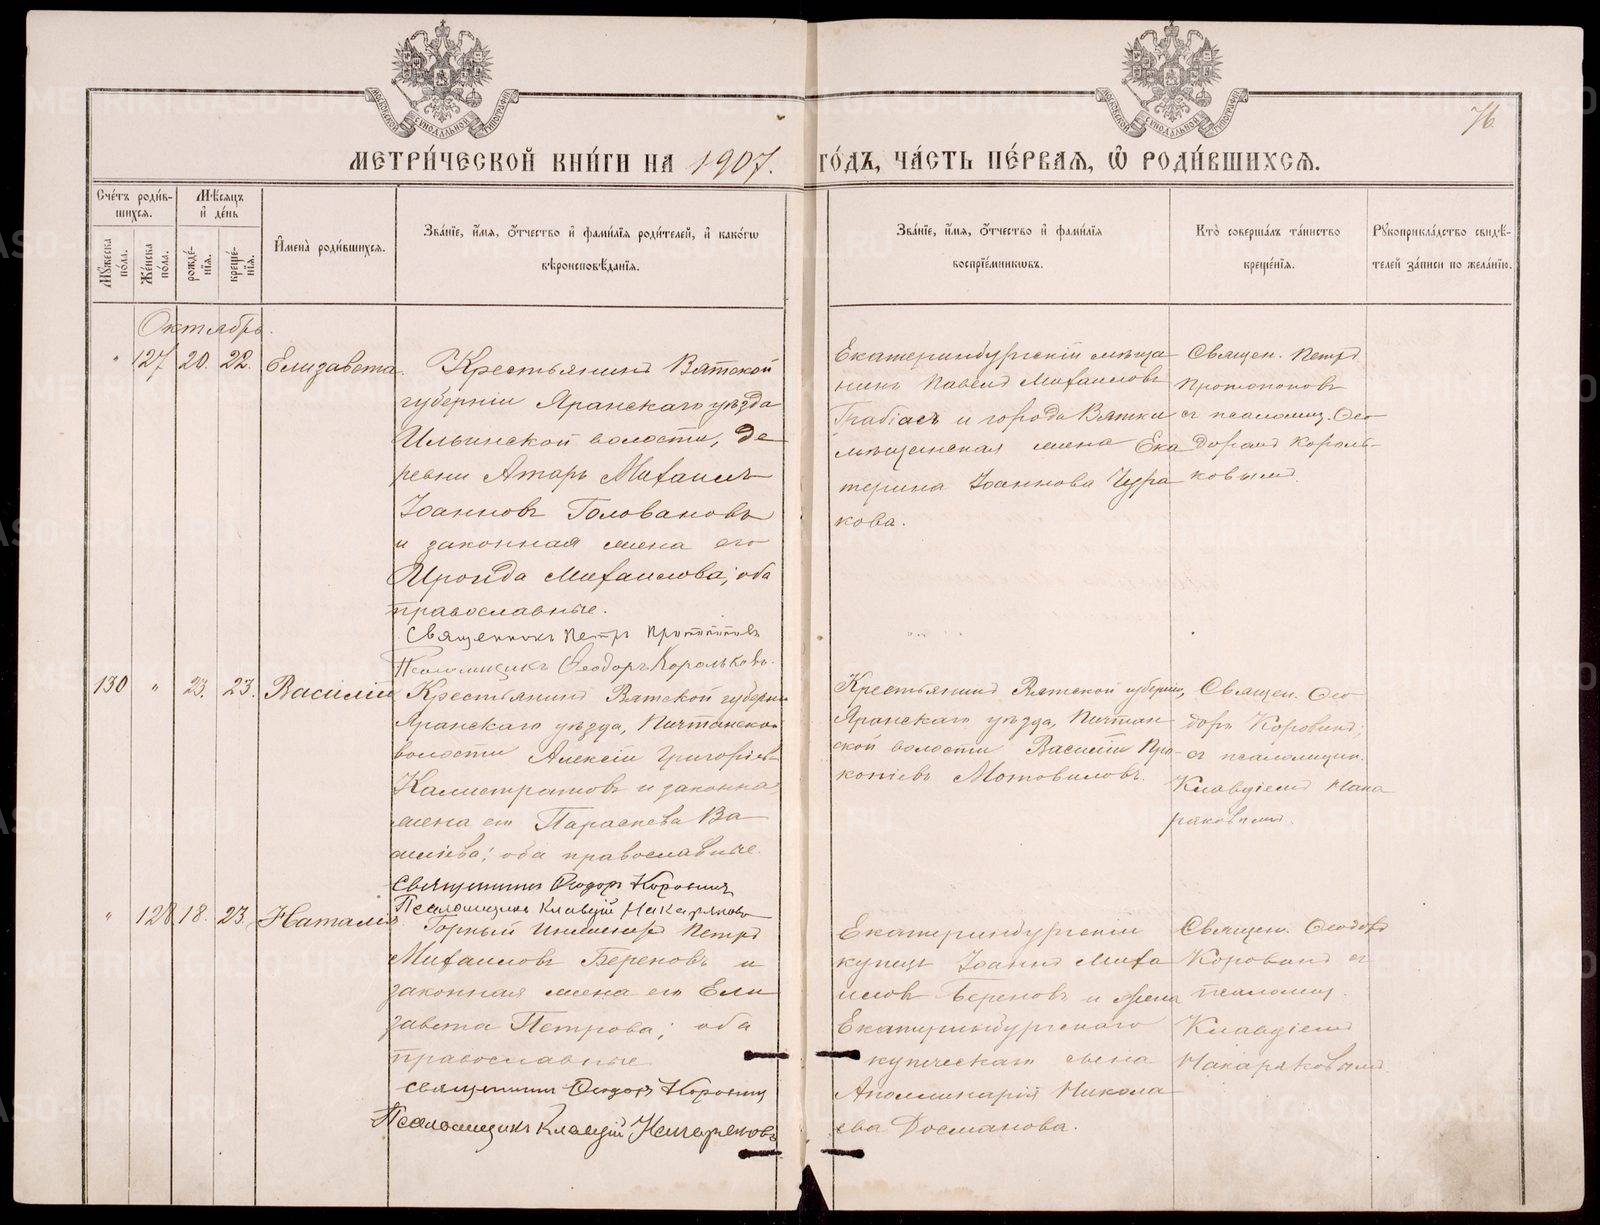 МОСКОВСКОЙ СУНОДАЛЬНОЙ ТИПОГРАФІИ
МОСКОВСКОЙ СУНОДАЛЬНОЙ ТИПОГРАФІИ
76
МЕТРИ́ЧЕСКОЙ КНИ́ГИ НА 1907. ГО́ДЪ, ЧА́СТЬ ПЕ́РВАѦ, Ѽ РОДИ́ВШИХСѦ.
Счетъ роди́вшихсѧ.
Мꙋжеска по́ла.
Же́нска по́ла.
Мѣ́сѧцъ и҆ де́нь
рожде́нїѧ.
креще́нїѧ.
И҆мена̀ роди́вшихсѧ.
Зва́нїе, и҆́мѧ, ѻ҆́тчество и҆ фами́лїѧ роди́телей, и҆ како́гѡ
вѣроисповѣ́данїѧ.
Зва́нїе, и҆́мѧ, ѻ҆́тчество и҆ фами́лїѧ
воспрїе́мникѡвъ.
Кто̀ соверша́лъ та́инство
креще́нїѧ.
Рꙋкоприкла́дство свидѣ́-
телей за́писи по жела́нїю.
Октябрь.
" 127 20. 22. Елизавета.
Крестьянинъ Вятской
губерніи Яранскаго уѣзда
Ильинской волости, де-
ревни Атарь Михаилъ
Іоанновъ Головановъ
и законная жена его
Ироида Михаилова; оба
православные.
Священникъ Петръ Протопоповъ
Псаломщикъ Ѳеодоръ Корольковъ.
Екатеринбургскій мѣща
нинъ Павелъ Михаиловъ
и города Вятки
мѣщанская жена Ека
терина Іоаннова Чура
кова.
Священ. Петръ
Протопоповъ
съ псаломщ. Ѳео
доромъ Король-
ковымъ.
130 " 23. 23. Василій
Крестьянинъ Вятской губерніи
Яранскаго уѣзда, Пиштанской
волости Алексій Григоріевъ
Калистратовъ и законная
жена его Параскева Ва
силіева; оба православные.
Священникъ Ѳеодоръ Коровинъ
Псаломщикъ Клавдій Накаряковъ
Крестьянинъ Вятской губерніи,
Яранскаго уѣзда, Пиштан
ской волости Василій Про-
копіевъ Мотовиловъ.
Священ. Ѳео
доръ Коровинъ;
съ псаломщик.
Клавдіемъ Нака
ряковымъ.
" 128 18. 23. Наталія
Горный инженеръ Петръ
Михаиловъ Береновъ и
законная жена его Ели
завета Петрова; оба
православные
Священникъ Ѳеодоръ Коровинъ
Псаломщикъ Клавдій Накаряковъ
Екатеринбургскій
купецъ Іоаннъ Миха
иловъ Береновъ и жена
Екатеринбургскаго
купеческаго сына
Аполлинарія Никола
ева Досманова.
Священ. Ѳеодоръ
Коровинъ съ
псаломщ.
Клавдіемъ
Накаряковымъ